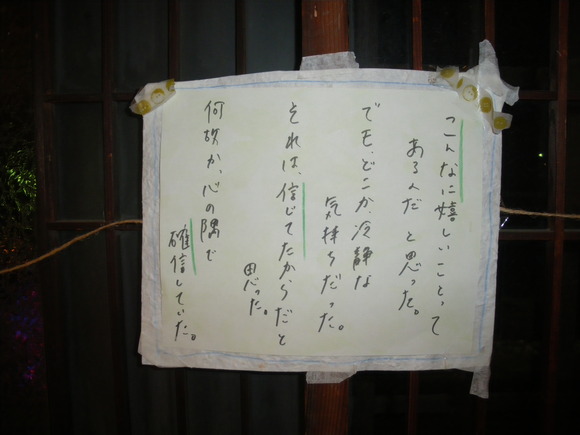 こんなに嬉しいことって
あるんだ と思った。
でも、どこか、冷静な
気持ちだった。
それは、信じてたからだと
思った。
何故か、心の隅で
確信していた。